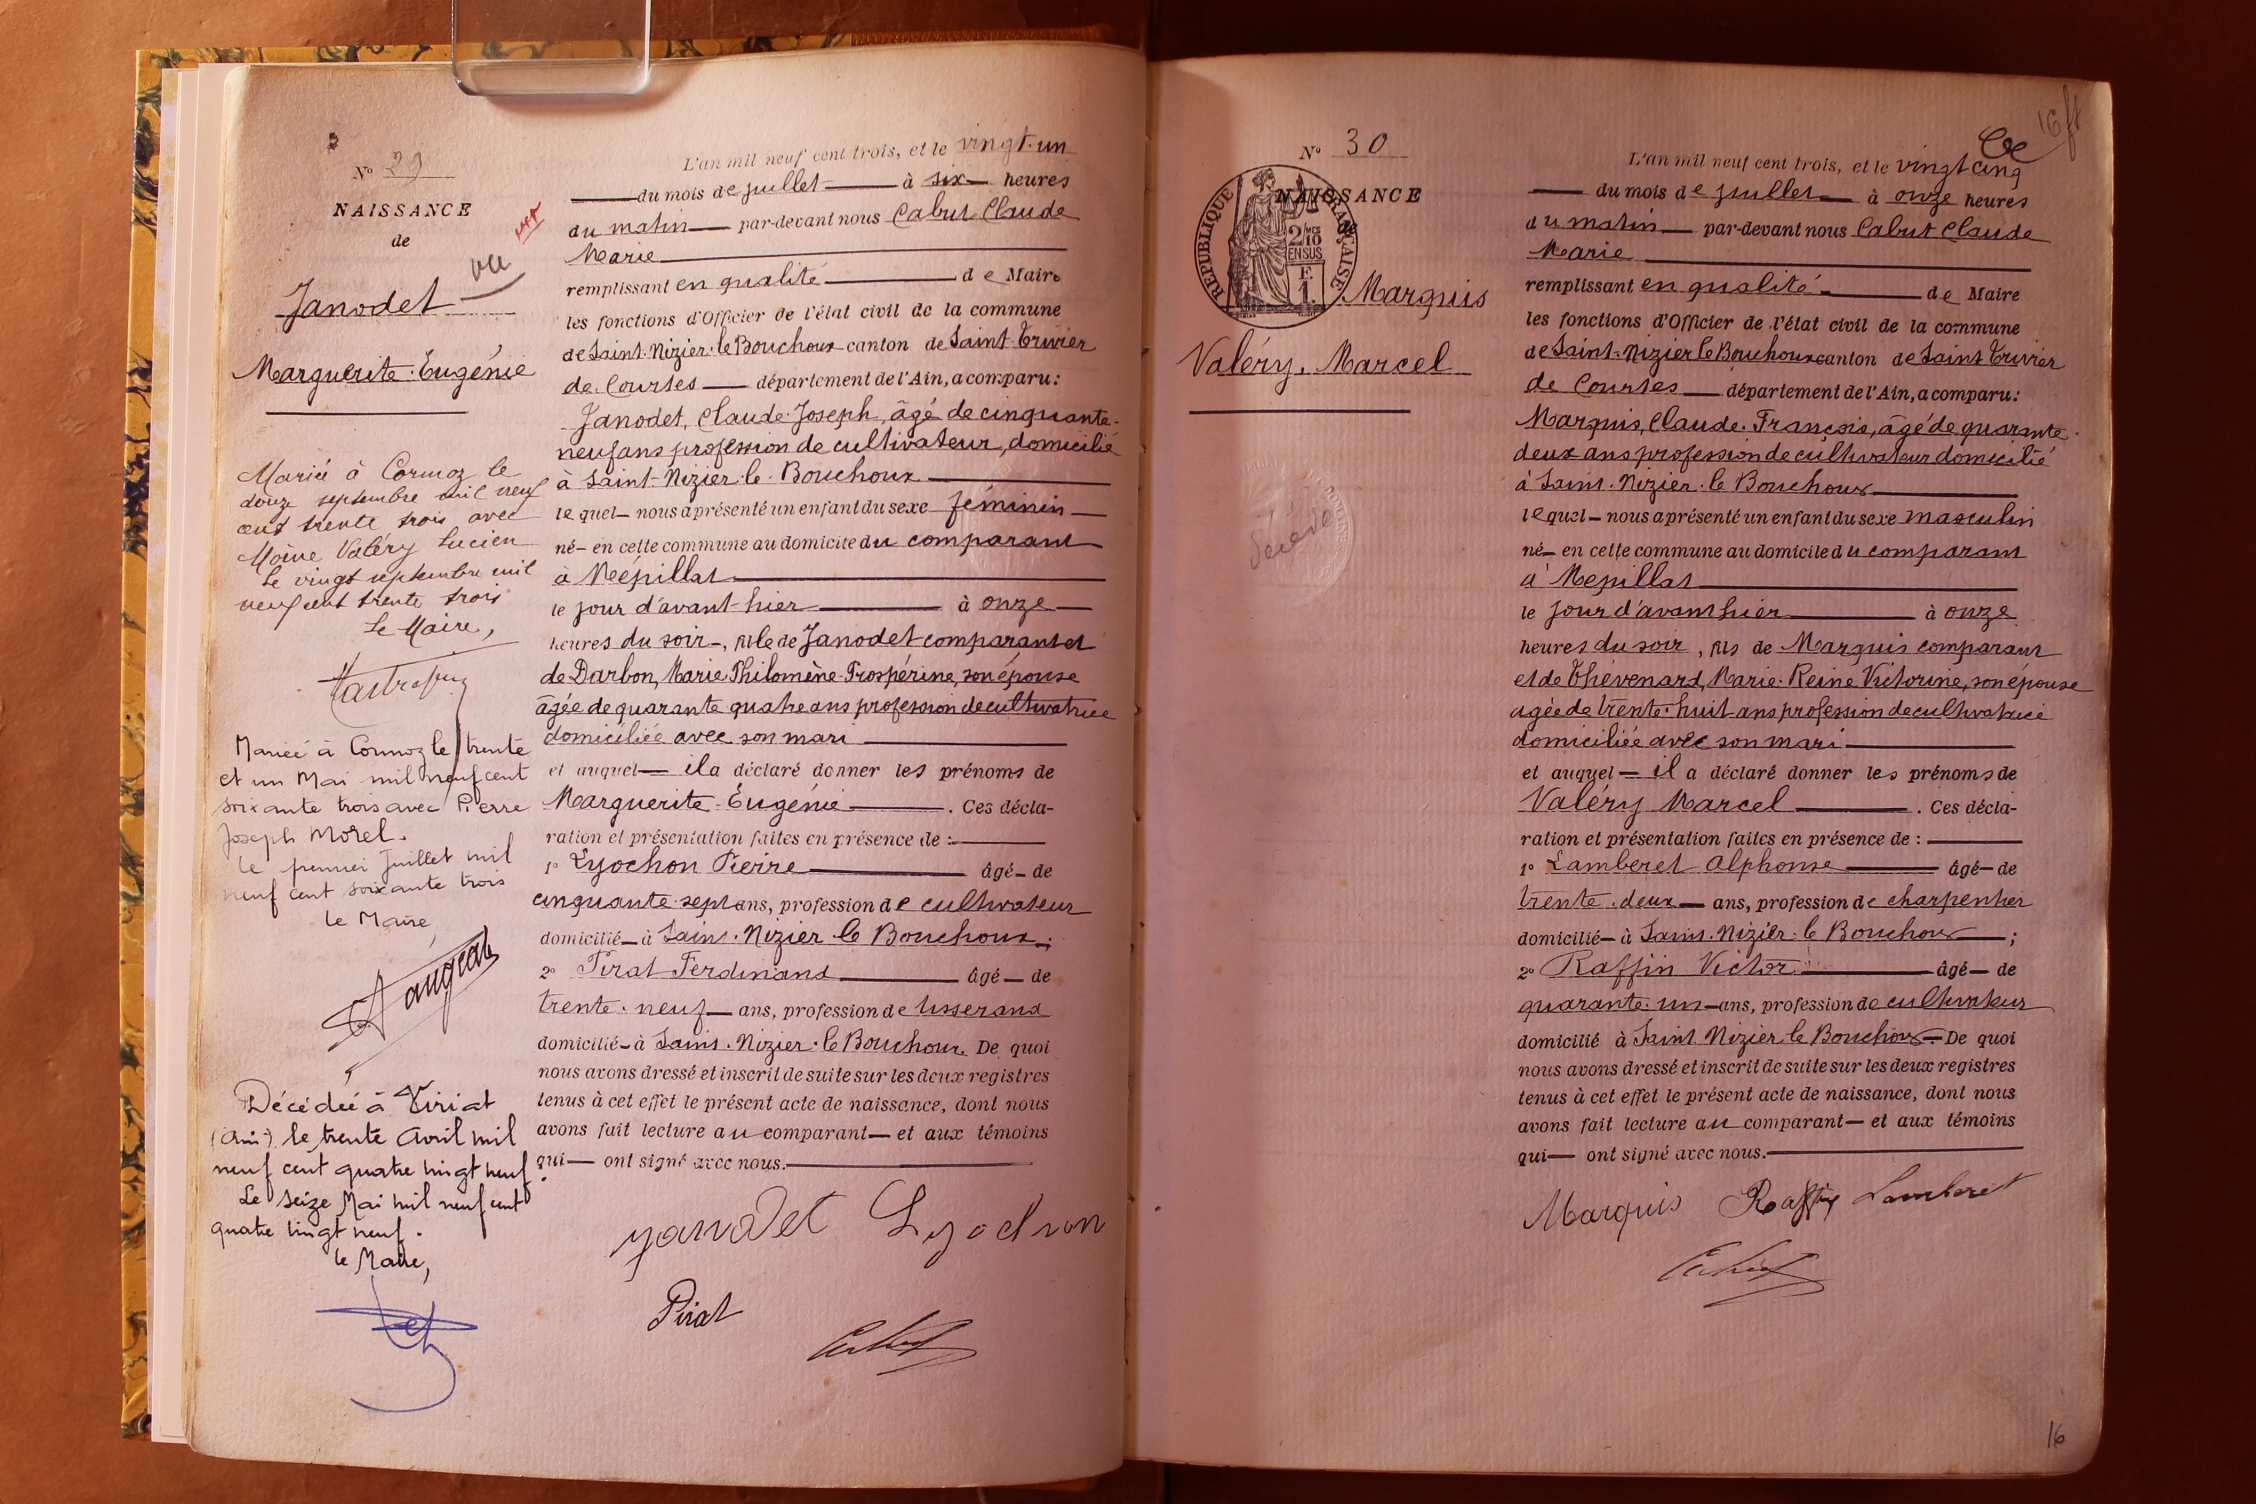 N° 29
NAISSANCE
de
vu
Janodet
Marguerite-Eugénie
Mariée à Cormoz le
douze septembre mil neuf
cent trente trois avec
Moine Valéry Lucien
Le vingt septembre mil
neuf cent trente trois
Le Maire,
Mariée à Cormoz le trente
et un Mai mil neuf cent
soixante trois avec Pierre
Joseph Morel.
Le premier Juillet mil
neuf cent soixante trois
le Maire,
Décédée à Viriat
(Ain) le trente Avril mil
neuf cent quatre vingt neuf.
Le seize Mai mil neuf cent
quatre vingt neuf.
le Maire,
L'an mil neuf cent trois, et le vingt-un
du mois de juillet à six heures
du matin par-devant nous Cabut Claude
Marie
remplissant en qualité de Maire
les fonctions d'Officier de l'état civil de la commune
de Saint-Nizier-le-Bouchoux canton de Saint-Trivier
de Courtes département de l'Ain, a comparu:
Janodet, Claude-Joseph, âgé de cinquante-
neuf ans profession de cultivateur, domicilié
à Saint-Nizier-le-Bouchoux
lequel nous a présenté un enfant du sexe féminin
né en cette commune au domicile du comparant
à Mépillat
le jour d'avant-hier à onze
heures du soir, fille de Janodet comparant et
de Darbon, Marie-Philomène-Prospérine, son épouse
âgée de quarante quatre ans profession de cultivatrice
domiciliée avec son mari
et auquel il a déclaré donner les prénoms de
Marguerite-Eugénie. Ces décla-
ration et présentation faites en présence de :
1° Lyochon Pierre âgé de
cinquante-sept ans, profession de cultivateur
domicilié à Saint-Nizier-le Bouchoux;
2° Pirat Ferdinand âgé de
trente-neuf ans, profession de tisserand
domicilié à Saint-Nizier-le Bouchoux. De quoi
nous avons dressé et inscrit de suite sur les deux registres
tenus à cet effet le présent acte de naissance, dont nous
avons fait lecture au comparant et aux témoins
qui ont signé avec nous.
Janodet Lyochon
Pirat
Cabut
16
N° 30
NAISSANCE
de
RÉPUBLIQUE FRANÇAISE
2/10 MES
EN SUS
F.
1.
Marquis
Valéry, Marcel
L'an mil neuf cent trois, et le vingt cinq
du mois de juillet à onze heures
du matin par-devant nous Cabut Claude
Marie
remplissant en qualité de Maire
les fonctions d'Officier de l'état civil de la commune
de Saint-Nizier le Bouchoux canton de Saint Trivier
de Courtes département de l'Ain, a comparu:
Marquis, Claude-François, âgé de quarante-
deux ans profession de cultivateur domicilié
à Saint-Nizier-le Bouchoux
lequel nous a présenté un enfant du sexe masculin
né en cette commune au domicile du comparant
à Mépillat
le jour d'avant hier à onze
heures du soir, fils de Marquis comparant
et de Thévenard, Marie-Reine Victorine, son épouse
agée de trente-huit ans profession de cultivatrice
domiciliée avec son mari
et auquel il a déclaré donner les prénoms de
Valéry Marcel. Ces décla-
ration et présentation faites en présence de :
1° Lamberet Alphonse âgé de
trente-deux ans, profession de charpentier
domicilié à Saint-Nizier-le Bouchoux;
2° Raffin Victor âgé de
quarante-un ans, profession de cultivateur
domicilié à Saint Nizier le Bouchoux. De quoi
nous avons dressé et inscrit de suite sur les deux registres
tenus à cet effet le présent acte de naissance, dont nous
avons fait lecture au comparant et aux témoins
qui ont signé avec nous.
Marquis Raffin Lamberet
Cabut
16